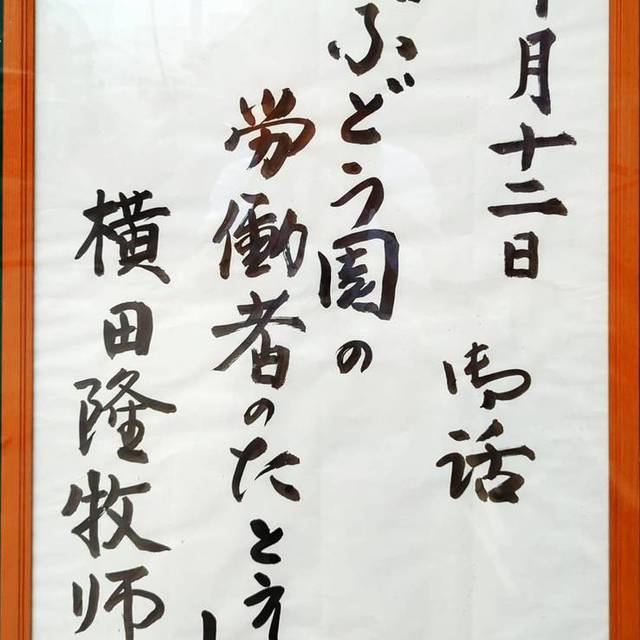 月十二日 御話
ぶどう園の
労働者のたとえ
横田隆牧師